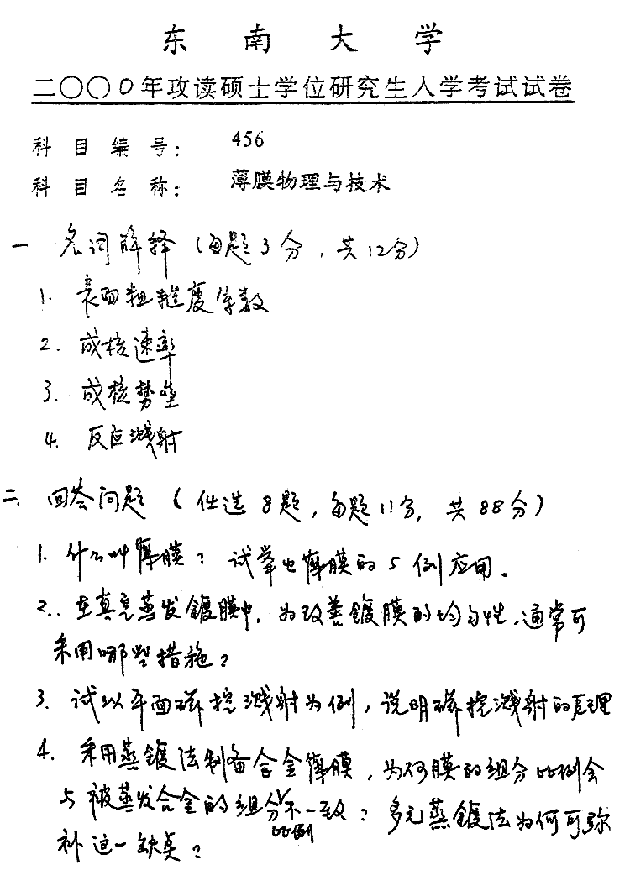 东南大学
二〇〇〇年攻读硕士学位研究生入学考试试卷
科目编号: 456
科目名称: 薄膜物理与技术
一 名词解释(每题3分,共12分)
1. 表面粗糙度系数
2. 成核速率
3. 成核势垒
4. 反应溅射
二 回答问题(任选8题,每题11分,共88分)
1. 什么叫薄膜?试举出薄膜的5例应用。
2. 在真空蒸发镀膜中,为改善镀膜的均匀性,通常可
采用哪些措施?
3. 试以平面磁控溅射为例,说明磁控溅射的原理
4. 采用蒸镀法制备合金薄膜,为何膜的组分比例会
与被蒸发合金的组分比例不一致?多元蒸镀法为何可弥
补这一缺点?